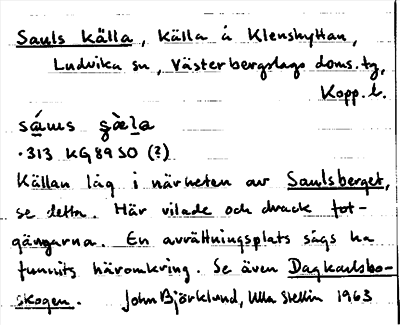 Sauls källa, Källa å Klenshyttan,
Ludvika sn, Västerbergslags doms. tg,
Kopp. l.
·313 KG 89 SO (?)
Källan låg i närheten av Saulsberget,
se detta. Här vilade och drack fot-
gängarna. En avrättningsplats sägs ha
funnits häromkring. Se även Dagkarlsbo-
skogen. John Björklund, Ulla Stellin 1963